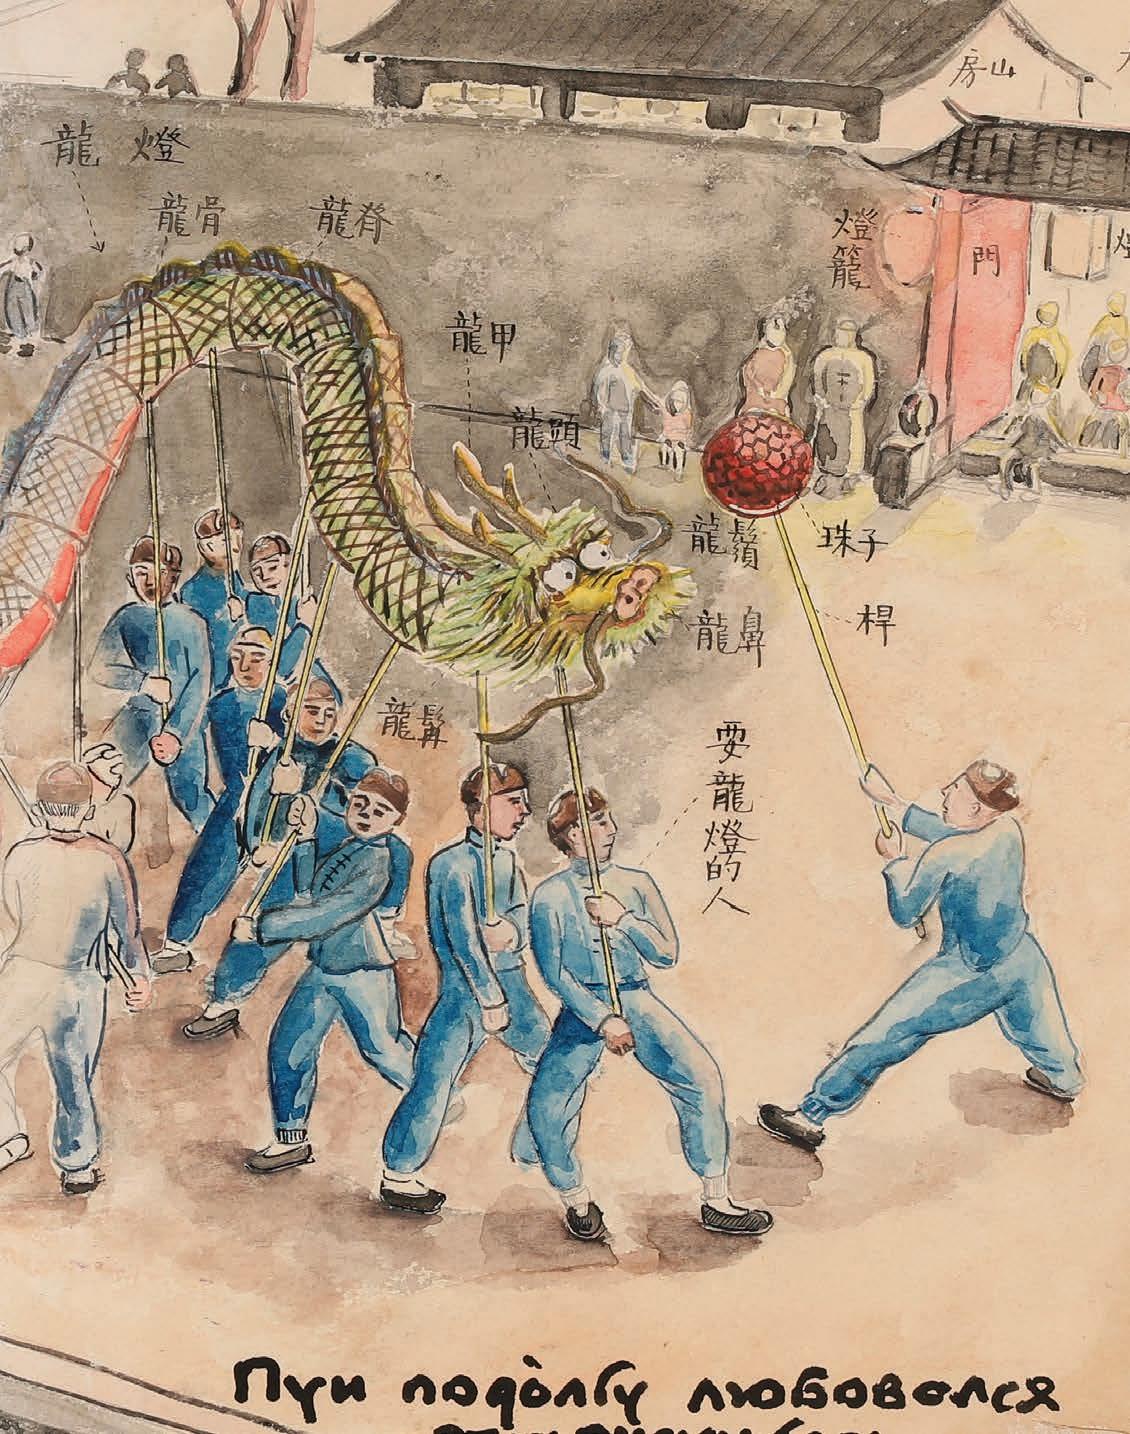 房山
龍燈
龍骨
龍脊
燈籠
門
龍甲
龍頭
龍鬚
珠子
龍鼻
桿
龍髯
耍龍燈的人
Пуи подолгу любовался